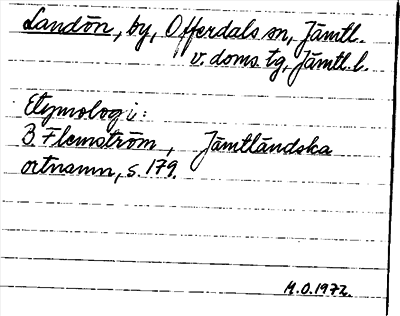 Landön, by, Offerdals sn, Jämtl.
v. doms. tg, Jämtl. l.
Etymologi:
B. Flemström, Jämtländska
ortnamn, s. 179.
M.O. 1972.